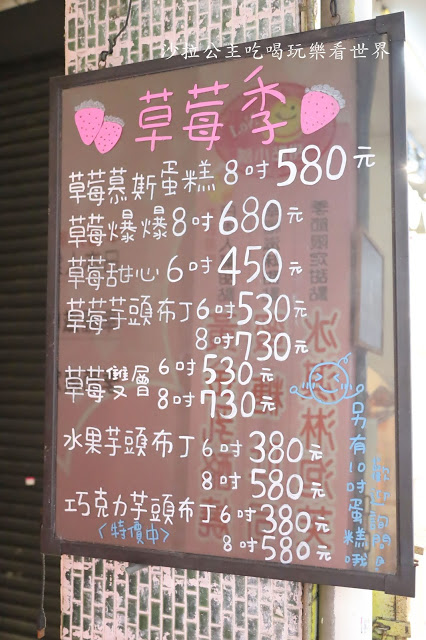 沙拉公主吃喝玩樂看世界
草莓季
草莓慕斯蛋糕 8吋 580元
草莓爆爆 8吋 680元
草莓甜心 6吋 450元
草莓芋頭布丁 6吋 530元
8吋 730元
草莓雙層 6吋 530元
8吋 730元
水果芋頭布丁 6吋 380元
8吋 580元
巧克力芋頭布丁 6吋 380元
<特價中> 8吋 580元
另有10吋蛋糕哦
歡迎詢問
季節限定甜點
冰淇淋泡芙